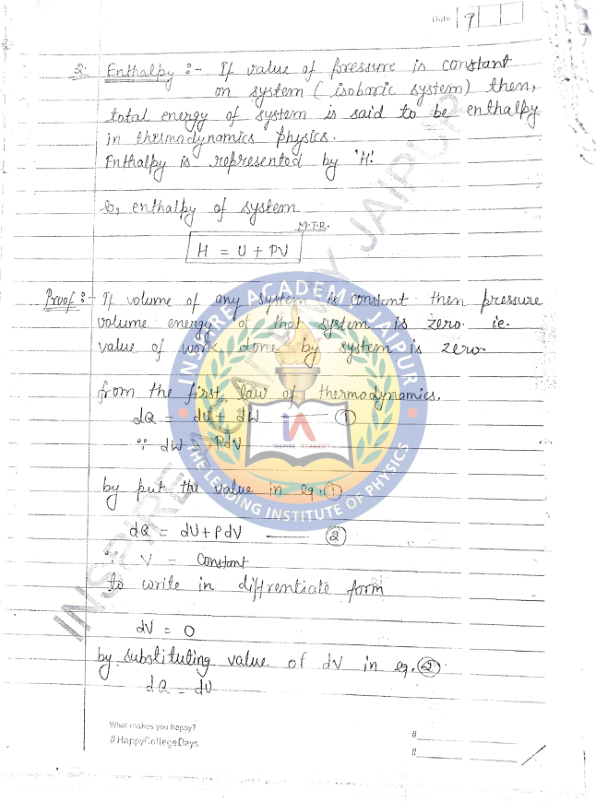 Date 9
2. Enthalpy :- If value of pressure is constant
on system ( isobaric system) then,
total energy of system is said to be enthalpy
in thermodynamics physics.
Enthalpy is represented by 'H'.
So, enthalpy of system
M.T.R.
H = U + PV
Proof :- If volume of any system is constant then pressure
volume energy of that system is zero. ie.
value of work done by system is zero.
from the first law of thermodynamics,
dQ = dU + dW —— ①
∵ dW = PdV
by put the value in eq. ①
dQ = dU + PdV —— ②
∵ V = Constant
to write in diffrentiate form
dV = 0
by substituting value of dV in eq. ②
dQ = dU
What makes you happy?
#HappyCollegeDays
#
#
INSPIRE ACADEMY JAIPUR
INSPIRE ACADEMY JAIPUR
INSPIRE ACADEMY
THE LEADING INSTITUTE OF PHYSICS